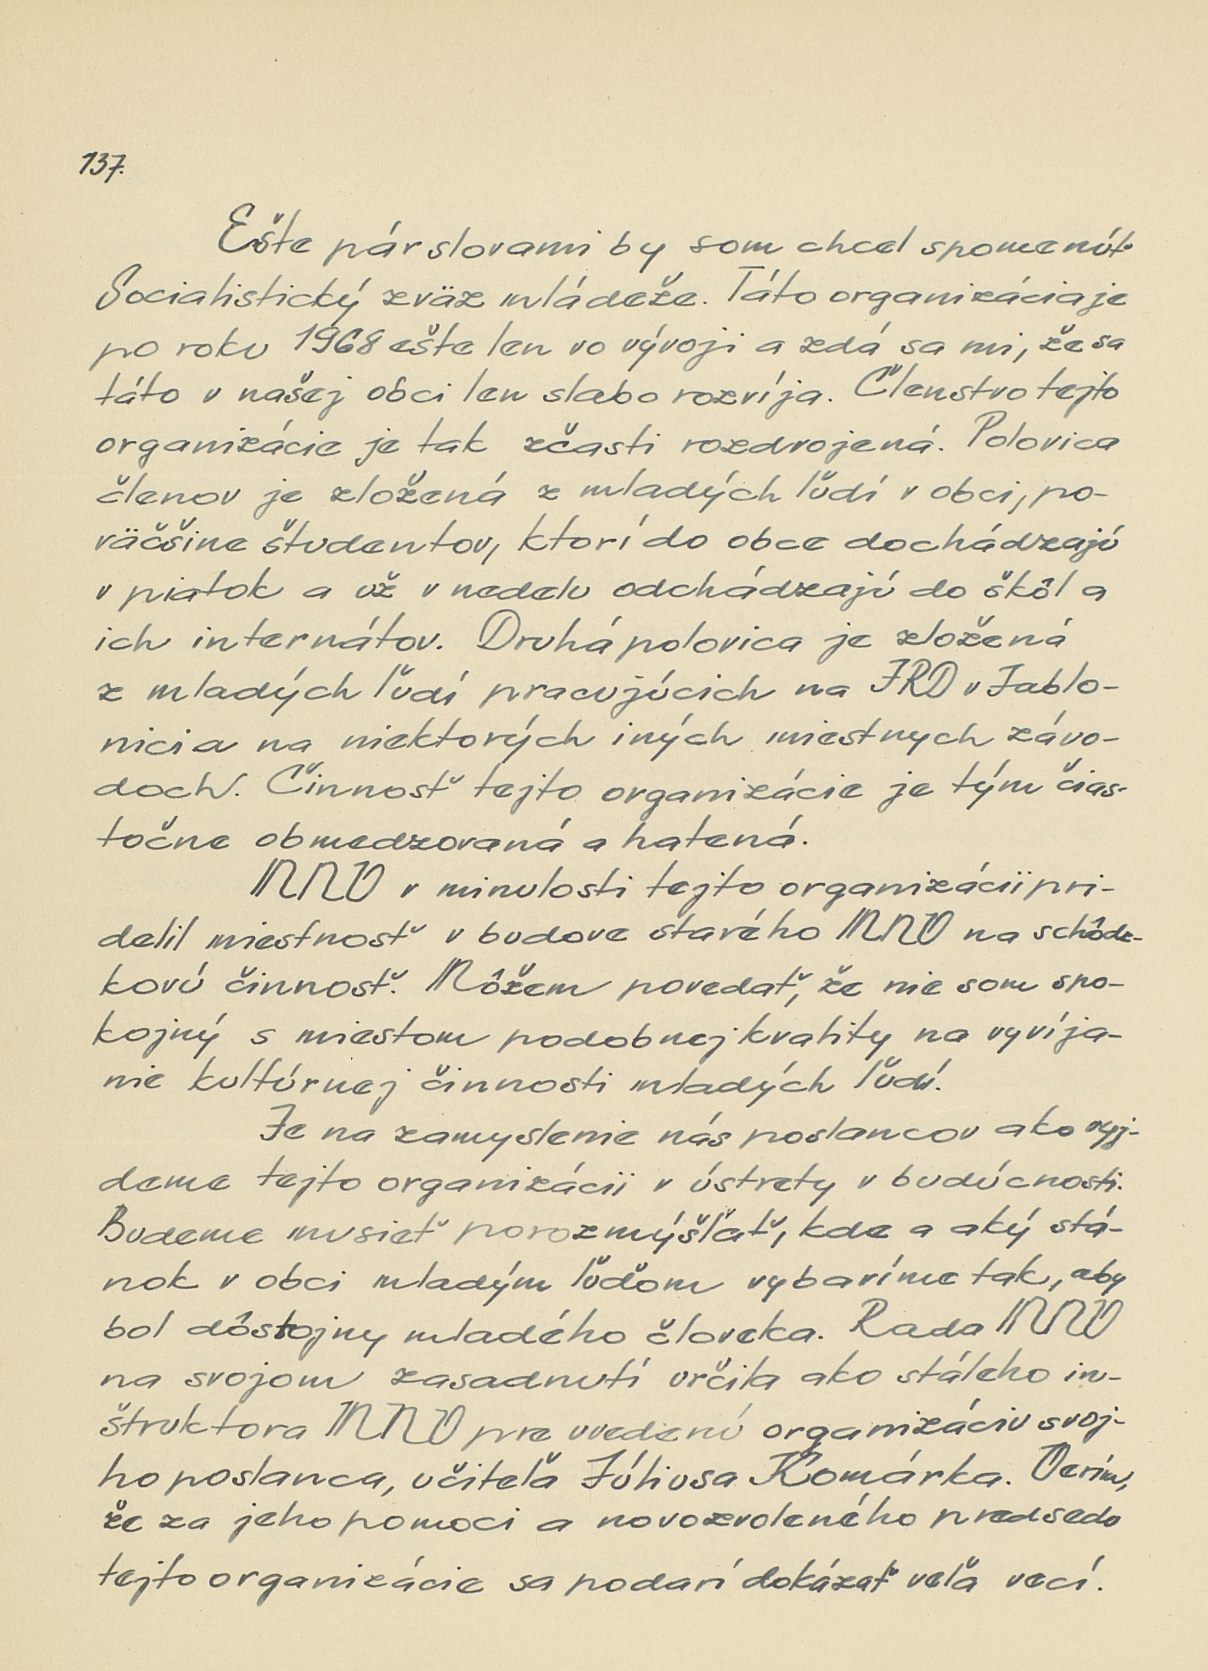 137.
Ešte pár slovami by som chcel spomenúť
Socialistický zväz mládeže. Táto organizácia je
po roku 1968 ešte len vo vývoji a zdá sa mi, že sa
táto v našej obci len slabo rozvíja. Členstvo tejto
organizácie je tak zčasti rozdvojená. Polovica
členov je zložená z mladých ľudí v obci, po-
väčšine študentov, ktorí do obce dochádzajú
v piatok a už v nedelu odchádzajú do škôl a
ich internátov. Druhá polovica je zložená
z mladých ľudí pracujúcich na JRD v Jablo-
nici a na niektorých iných miestnych závo-
doch. Činnosť tejto organizácie je tým čias-
točne obmedzovaná a hatená.
MNV v minulosti tejto organizácii pri-
delil miestnosť v budove starého MNV na schôdz-
kovú činnosť. Môžem povedať, že nie som spo-
kojný s miestom podobnej kvality na vyvíja-
nie kultúrnej činnosti mladých ľudí.
Je na zamyslenie nás poslancov ako vyj-
deme tejto organizácii v ústrety v budúcnosti.
Budeme musieť porozmýšľať, kde a aký stá-
nok v obci mladým ľuďom vybavíme tak, aby
bol dôstojny mladého človeka. Rada MNV
na svojom zasadnutí určila ako stáleho in-
štruktora MNV pre uvedenú organizáciu svoj-
ho poslanca, učiteľa Júliusa Komárka. Verím,
že za jeho pomoci a novozvoleného predsedu
tejto organizácie sa podarí dokázať veľa vecí.